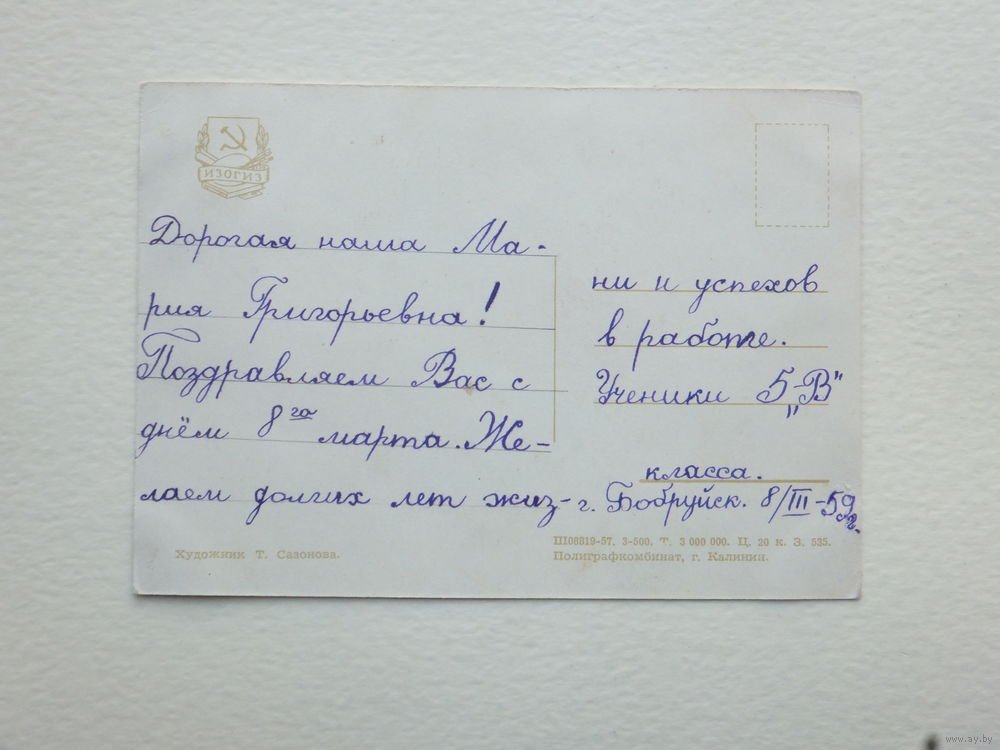 ИЗОГИЗ
Дорогая наша Ма-
рия Григорьевна!
Поздравляем Вас с
днём 8го марта. Же-
лаем долгих лет жиз-
ни и успехов
в работе.
Ученики 5 „В"
класса.
г. Бобруйск. 8/III-59г.
Художник Т. Сазонова.
Ш08819-57. З-500. Т. 3 000 000. Ц. 20 к. З. 535.
Полиграфкомбинат, г. Калинин.
www.ay.by